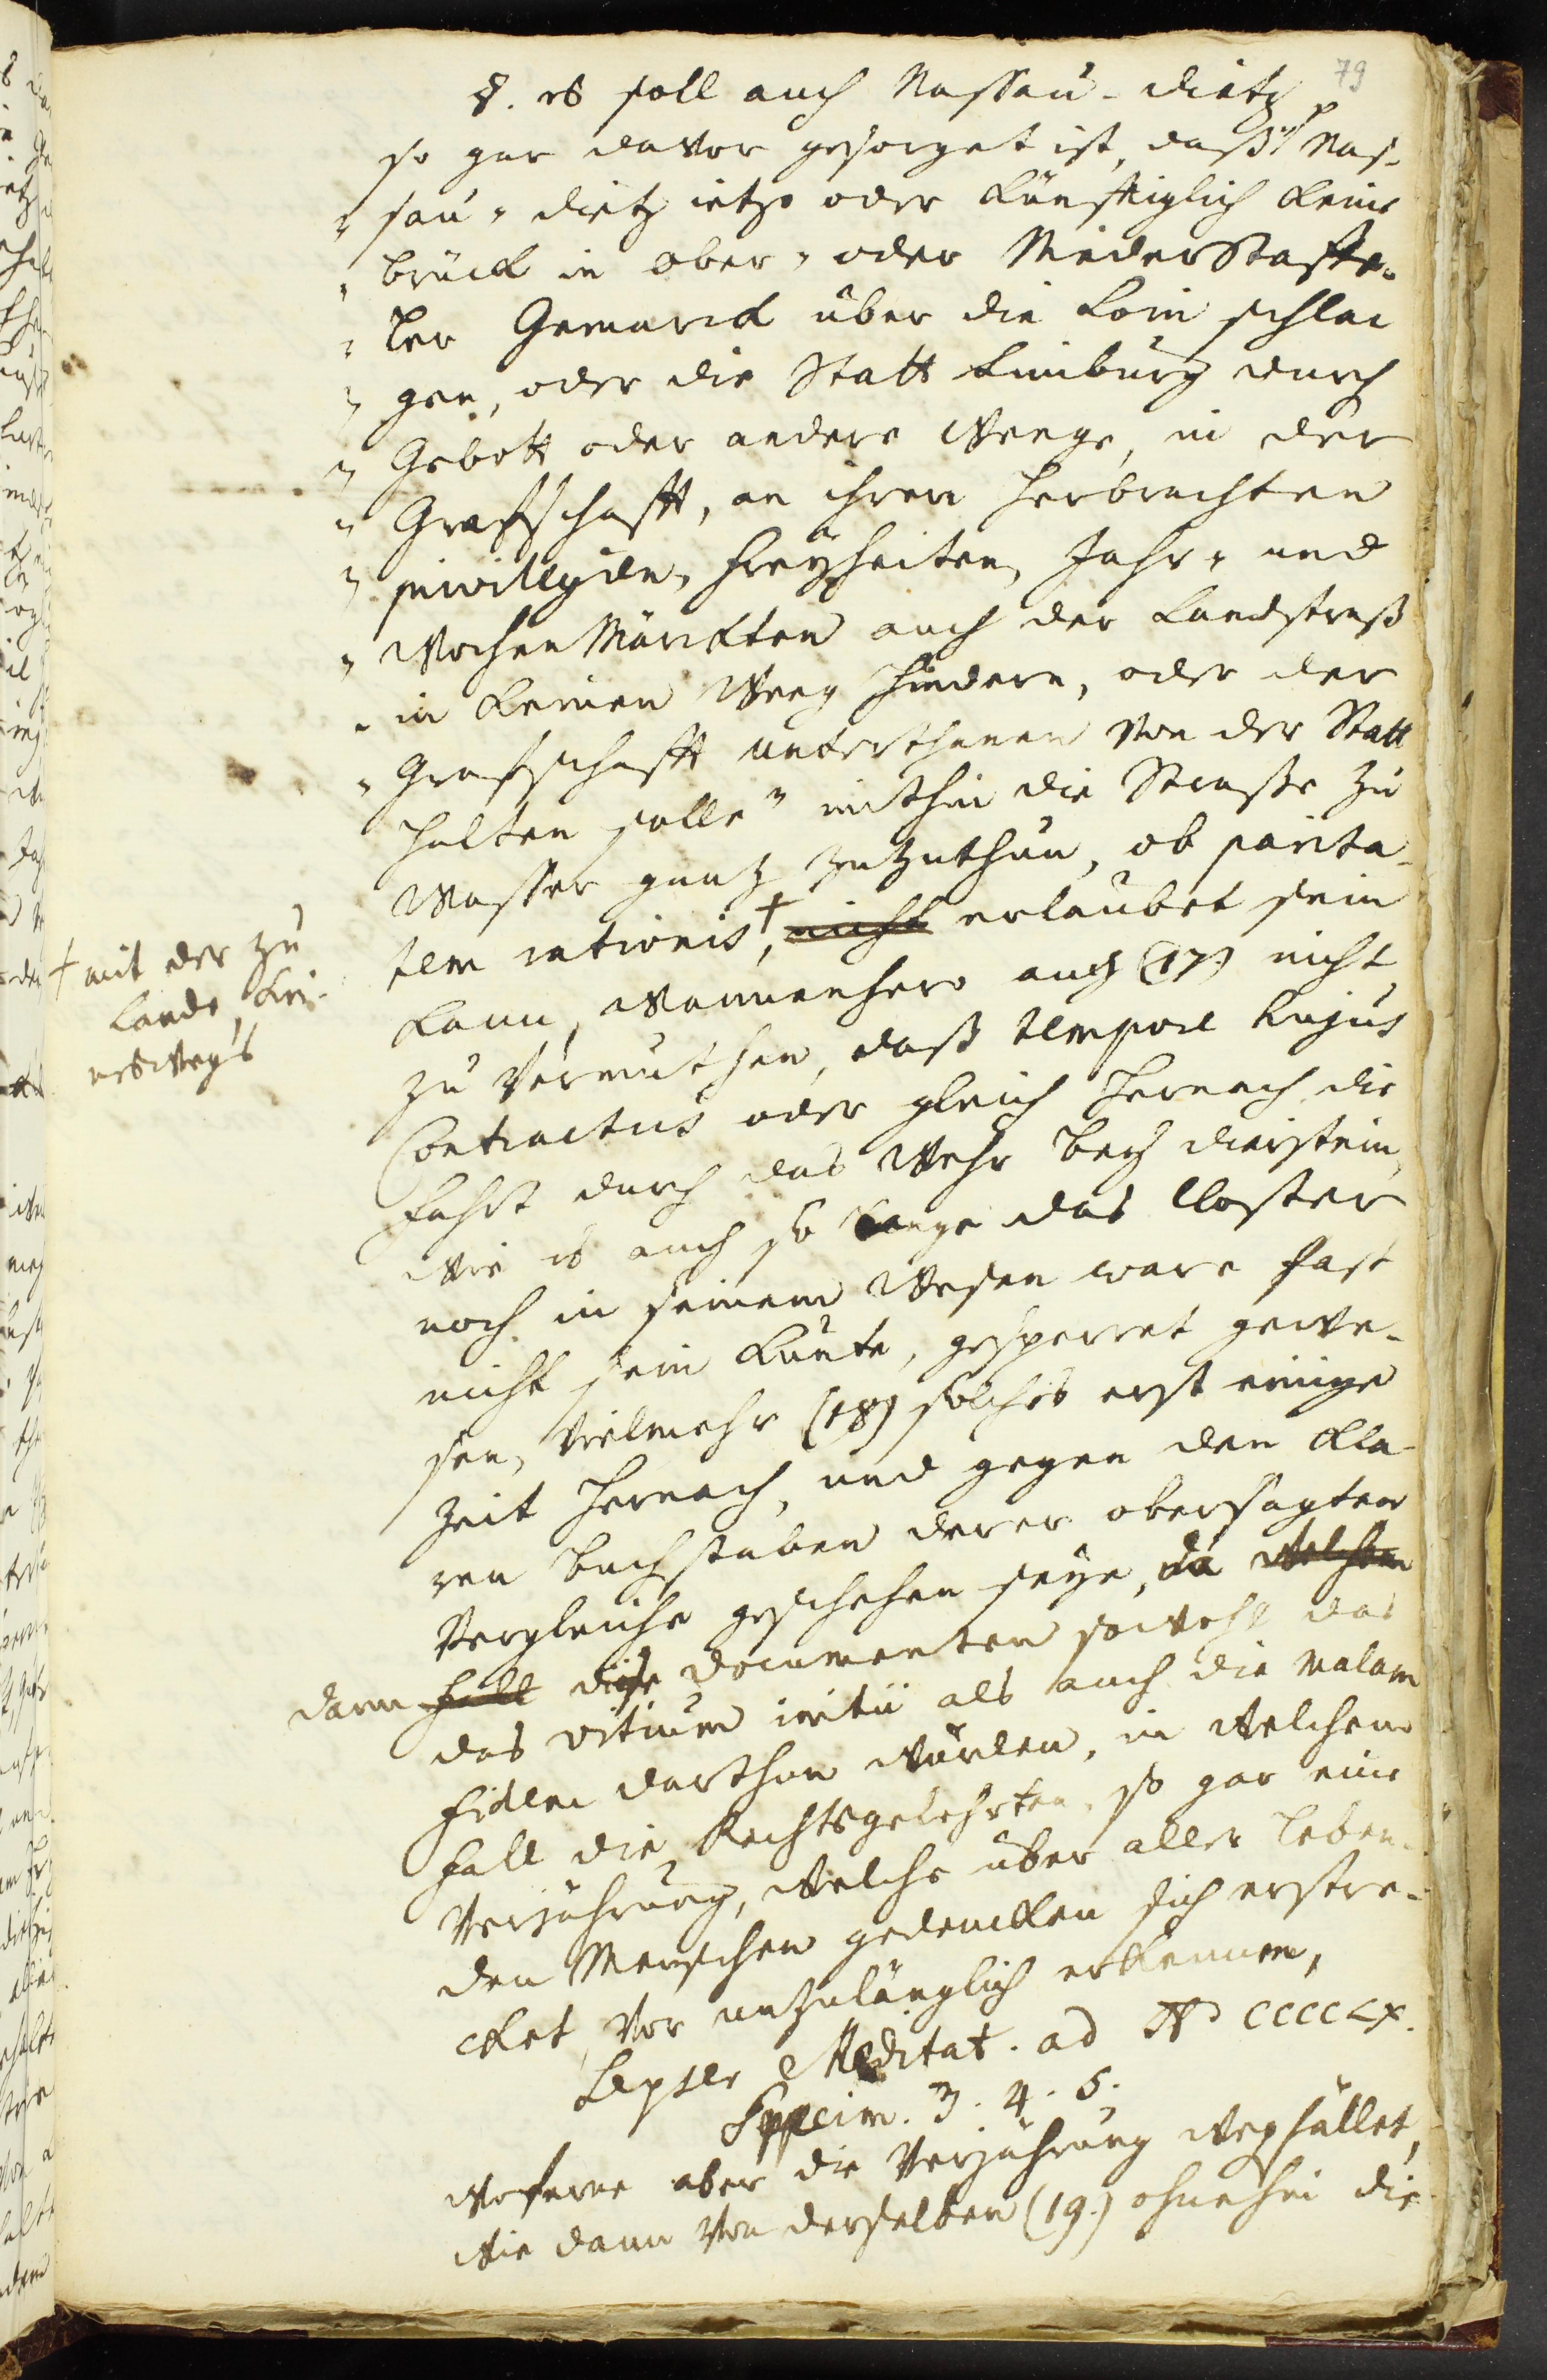 79
§. es soll auch Nassau-Dietz
so gar davor gesorget ist, daß Nas-
„ sau-Dietz ietzo oder künfftiglich keine
„ brück in ober- oder Nieder Staffe-
„ ler Gemarck über die Loin schla
„ gen, oder die Statt Limburg durch
„ Gebott oder andere Weege, in der
„ Graffschafft, an ihren herbrachten
„ privilegien, Freyheiten, Jahr- und
„ Wochen Märckten auch der Landstraß
„ in keinen Weeg hindern, oder der
„ Graffschafft unterthanen von der Statt
halten solle" mithin die Strasse zu
Wasser gantz zuzuthun, ob parita-
tem rationis †, nicht erlaubet sein
† mit der zu
Lande, kei-
nesweegs
kann, wannenhero auch (17) nicht
zu vermuthen, daß tempore hujus
Contractus oder gleich hernach die
Fahrt durch das Wehr bey Dierstein,
wie es auch so lange das Closter
noch in seinem Wesen ware fast
nicht sein kunte, gesperret gewe-
sen, vielmehr (18) solches erst einige
Zeit hernach, und gegen den kla-
ren Buchstaben derer obersagten
Vergleiche geschehen seye, da welchen
dann fall diese documenten sowohl das
das vitium initii als auch die malam
fidem darthun würden, in welchem
fall die Rechtsgelehrten so gar eine
Verjährung, welche über aller leben-
den Menschen gedencken sich erstre-
cket, vor unzulänglich erkennen,
Leyser Meditat. ad ff CCCCLX.
Specim. 3. 4. 5.
woferne aber die Verjährung wegfället,
wie dann von derselben (19.) ohnehin die